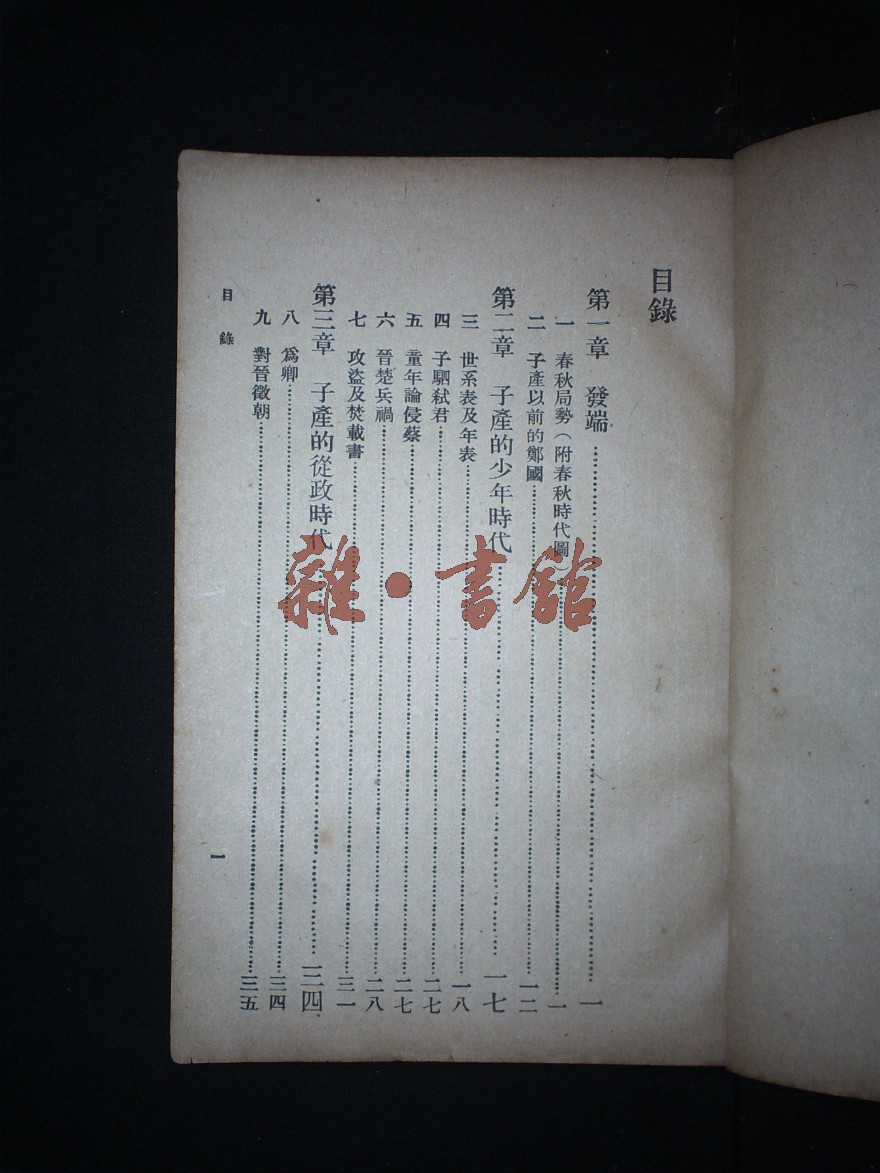 目錄
第一章 發端……一
一 春秋局勢（附春秋時代圖）……一
二 子產以前的鄭國……一二
第二章 子產的少年時代……一七
三 世系表及年表……一八
四 子駟弑君……二七
五 童年論侵蔡……二七
六 晉楚兵禍……二八
七 攻盜及焚載書……三一
第三章 子產的從政時代……三四
八 爲卿……三四
九 對晉徵朝……三五
目錄
一
雜·書館